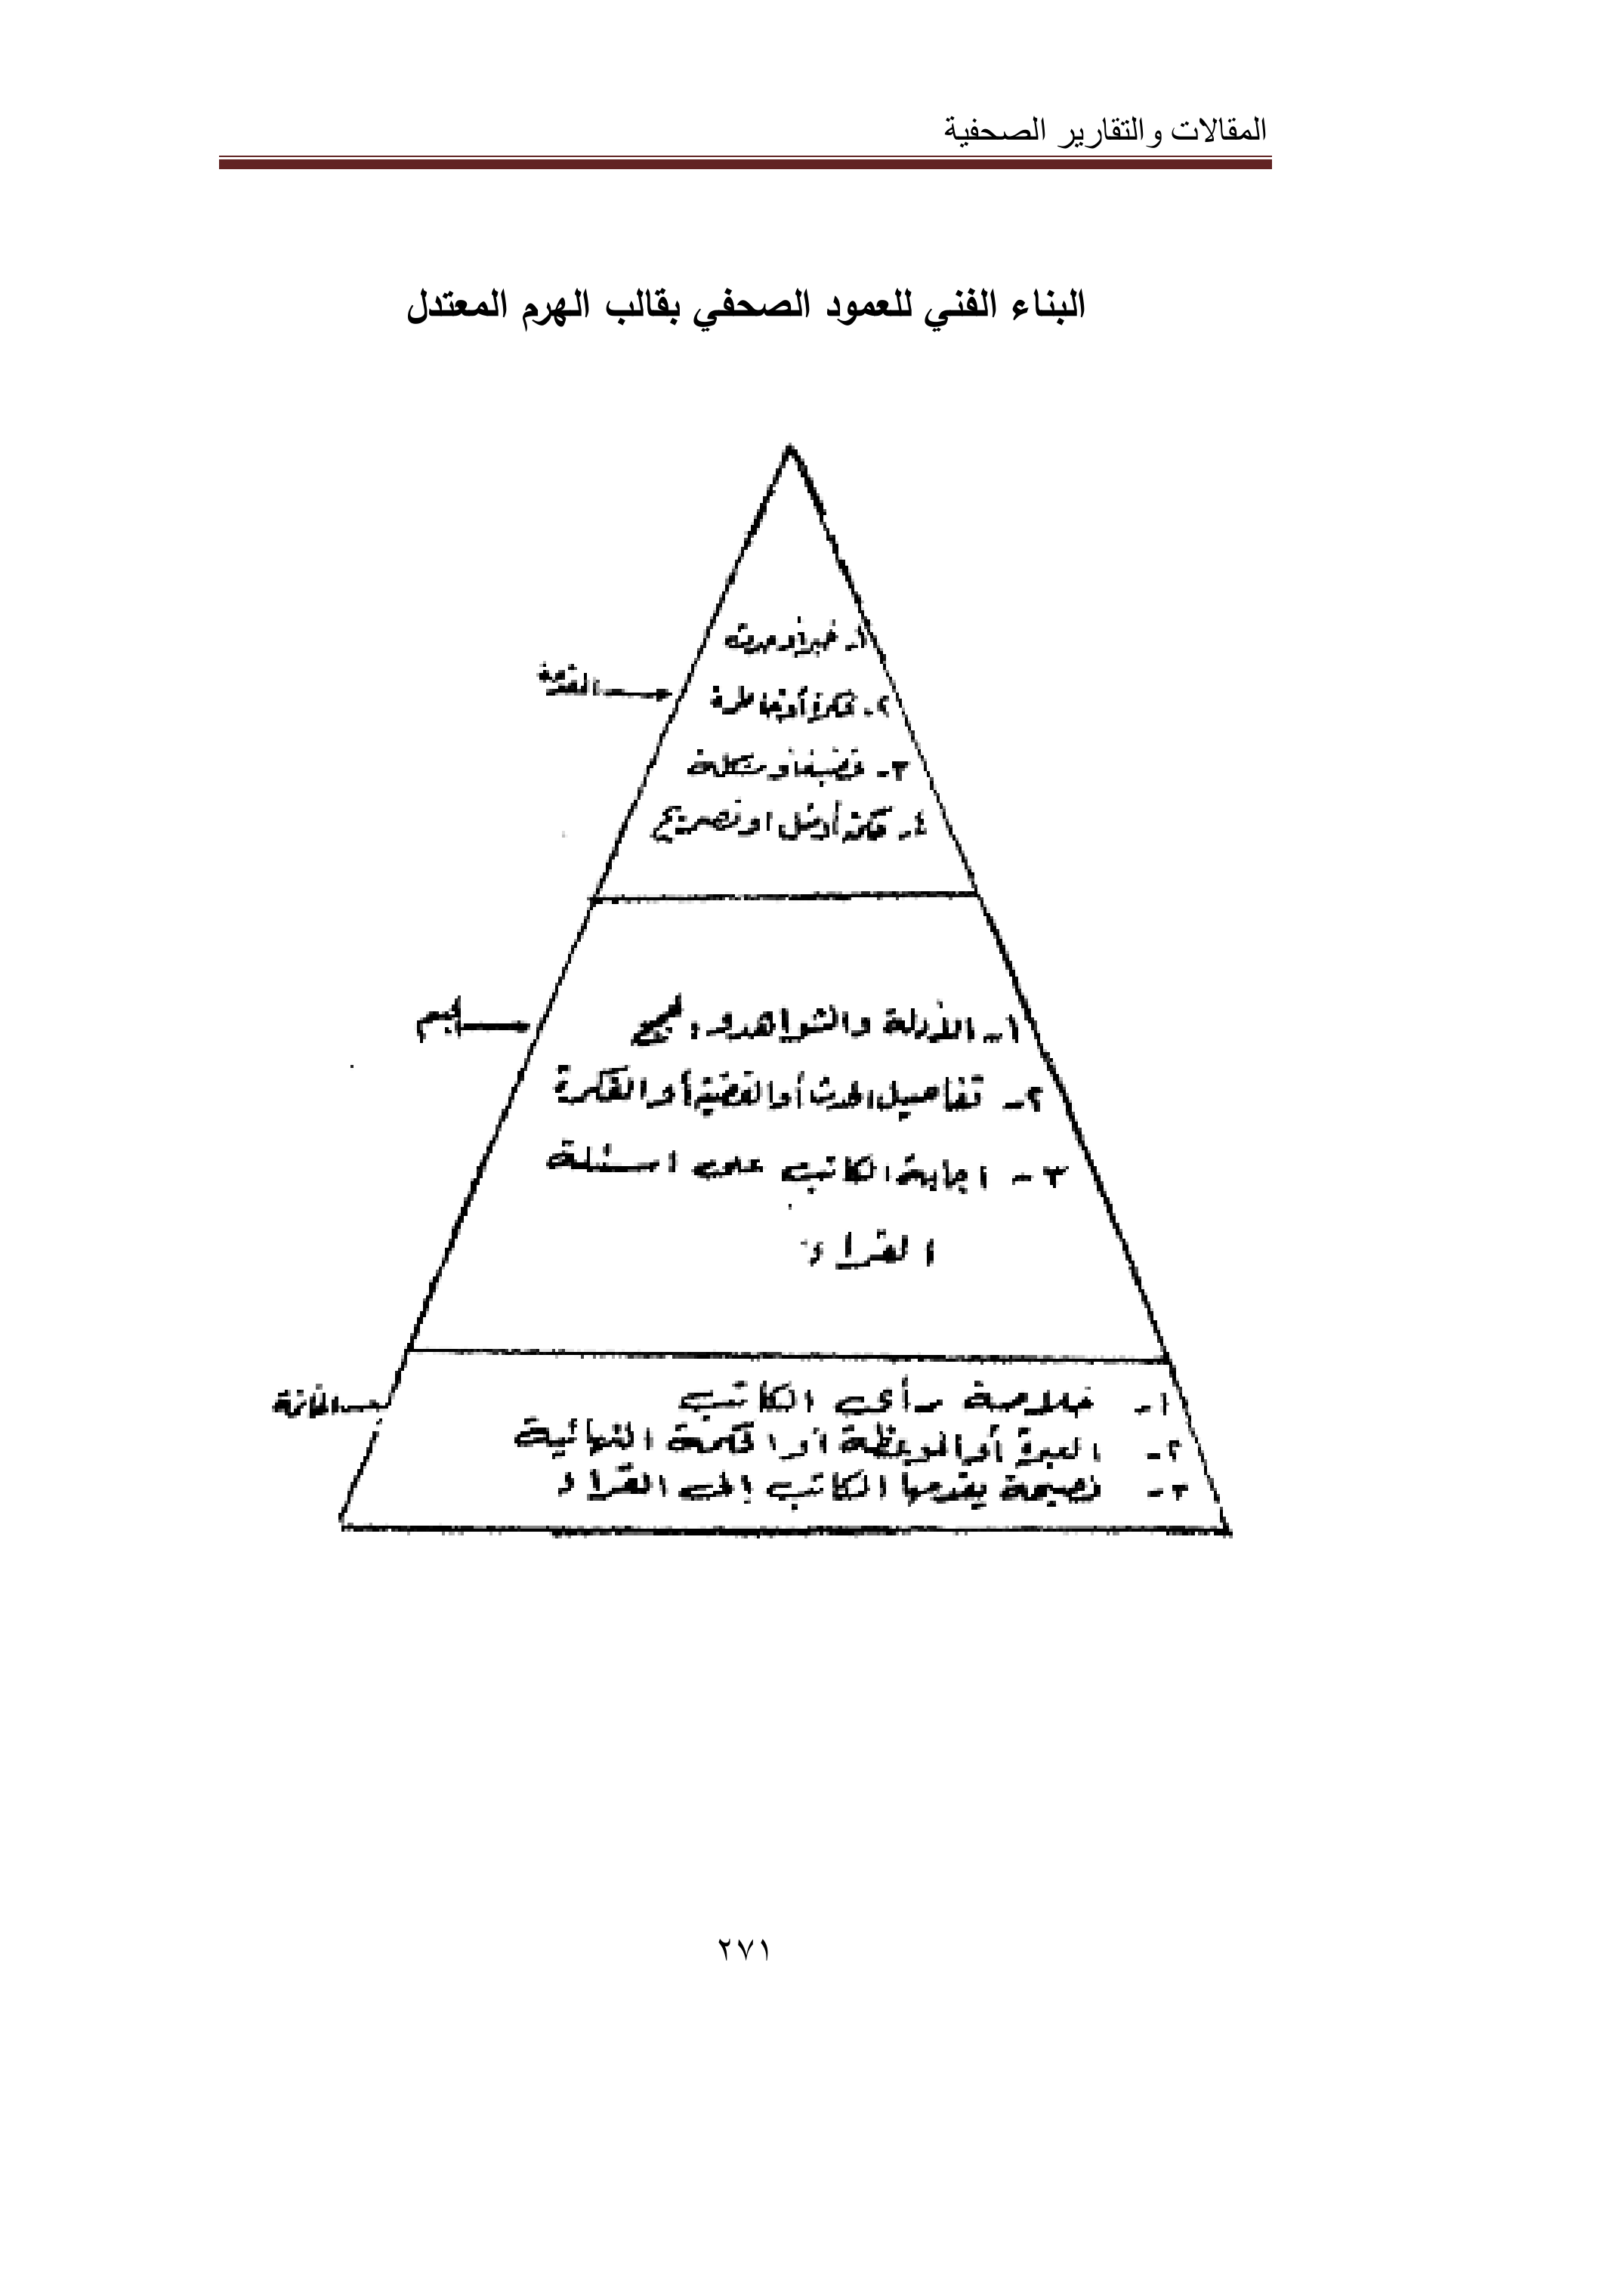 المقالات والتقارير الصحفية
البناء الفني للعمود الصحفي بقالب الهرم المعتدل
١ـ خبر أو حدث
المقدمة
٢ـ فكرة أو خاطرة
٣ـ قضية أو مشكلة
٤ـ حكمة أو مثل او تصريح
١ـ الأدلة والشواهد والحجج
الجسم
٢ـ تفاصيل الحدث أو القضية أو الفكرة
٣ـ اجابة الكاتب على اسئلة
القراء
١ـ خلاصة رأى الكاتب
الخاتمة
٢ـ العبرة أو الموعظة أو الحكمة النهائية
٣ـ نصيحة يقدمها الكاتب إلى القراء
٢٧١